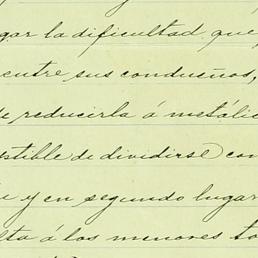 gar la dificultad que
entre sus condueños,
de reducirla á metálic
ptible de dividirse con
y en segundo lugar
lta á los menores to